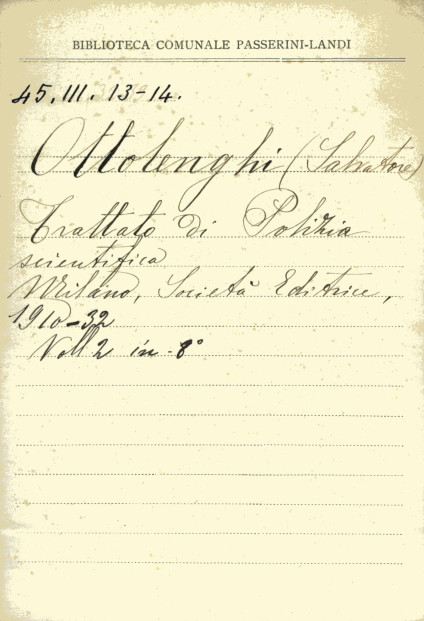 BIBLIOTECA COMUNALE PASSERINI-LANDI
45. III. 13-14.
Ottolenghi (Salvatore)
Trattato di Polizia
scientifica
Milano, Società Editrice,
1910-32
Voll 2 in-8°